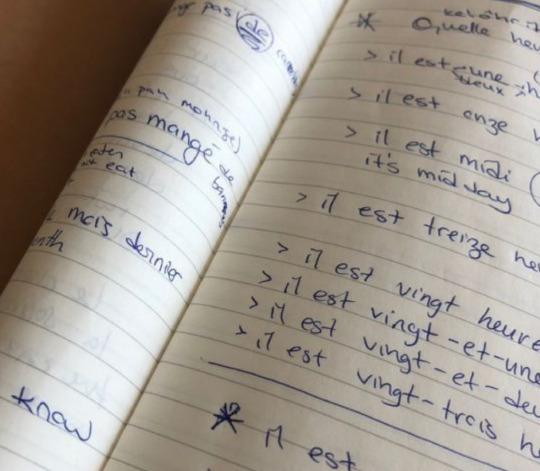 pas de
pas mangé de
eat
mois dernier
know
Quelle heu
> il est une h
deux
> il est onze h
> il est midi (
it's midday
> il est treize he
> il est vingt heure
> il est vingt-et-une
> il est vingt-et-deu
> il est vingt-trois h
* il est